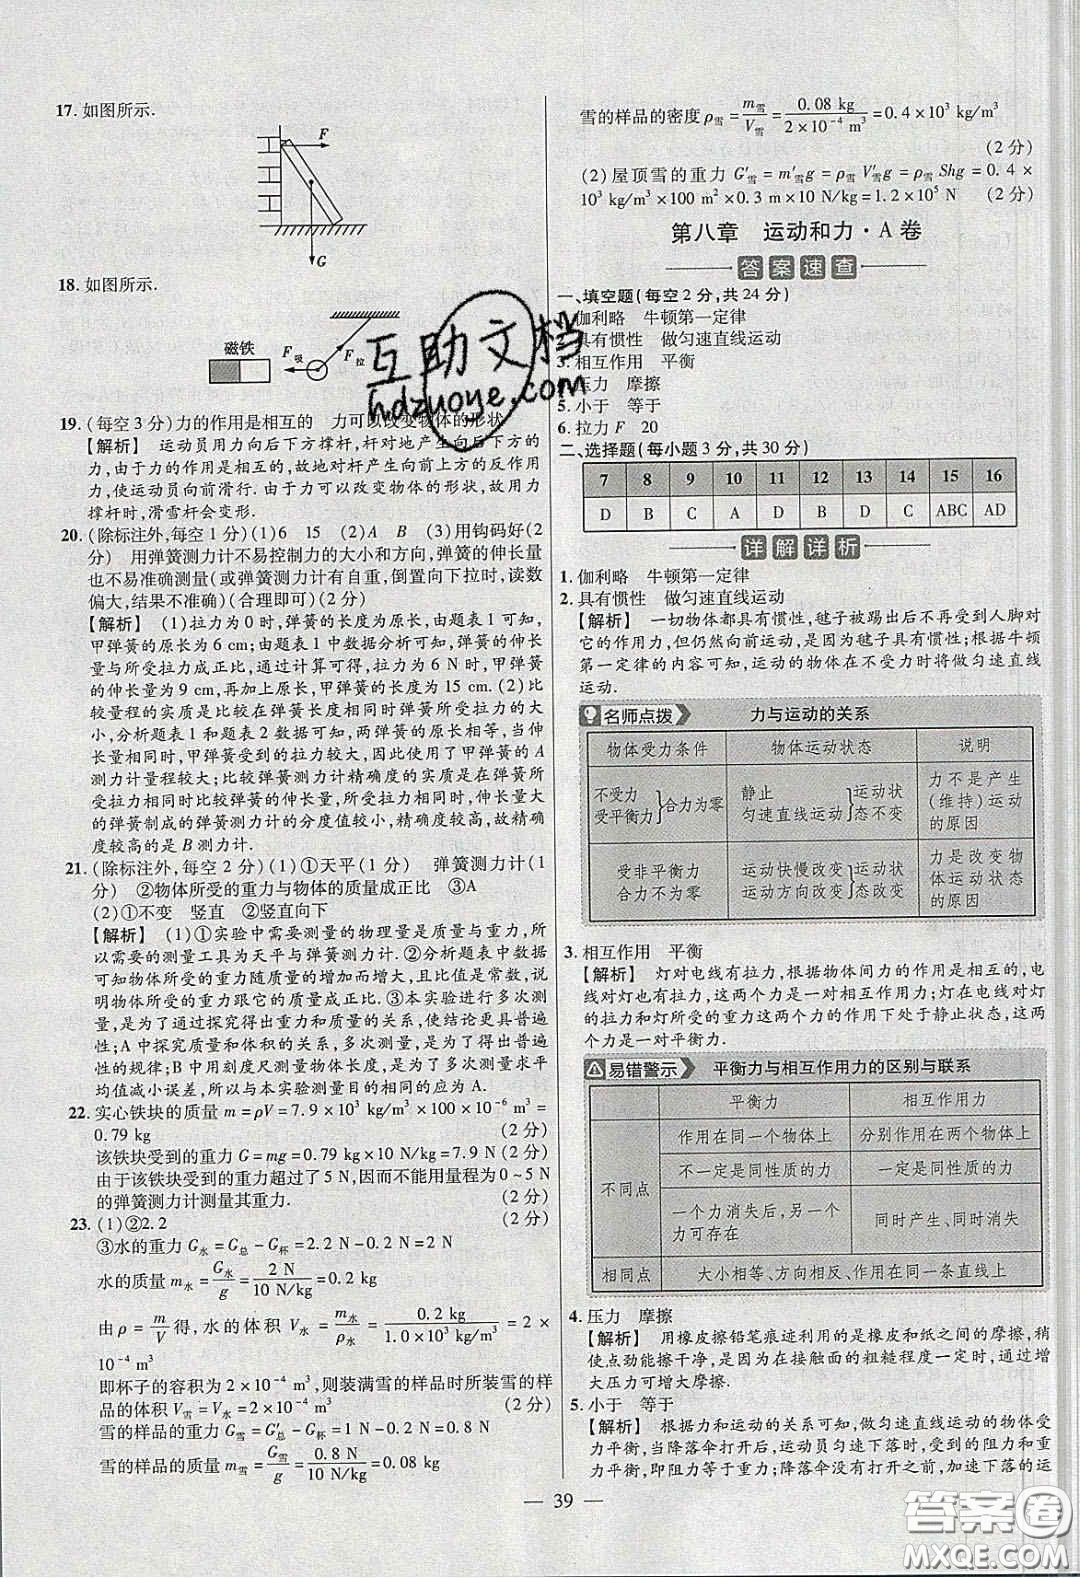 17. 如图所示.
F
G
18. 如图所示.
磁铁
F吸
F拉
19. (每空3分)力的作用是相互的　力可以改变物体的形状
【解析】　运动员用力向后下方撑杆,杆对地产生向后下方的
力,由于力的作用是相互的,故地对杆产生向前上方的反作用
力,使运动员向前滑行. 由于力可以改变物体的形状,故用力
撑杆时,滑雪杆会变形.
20. (除标注外,每空1分)(1)6　15　(2)A　B　(3)用钩码好(2
分)　用弹簧测力计不易控制力的大小和方向,弹簧的伸长量
也不易准确测量(或弹簧测力计有自重,倒着向下拉时,读数
偏大,结果不准确)(合理即可)(2分)
【解析】　(1)拉力为0时,弹簧的长度为原长,由题表1可知,
甲弹簧的原长为6 cm;由题表1中数据分析可知,弹簧的伸长
量与所受拉力成正比,通过计算可得,拉力为6 N时,甲弹簧
的伸长量为9 cm,再加上原长,甲弹簧的长度为15 cm. (2)比
较量程的实质是在弹簧长度相同时弹簧所受的拉力的大
小,分析题表1和题表2数据可知,两弹簧的原长相同,当伸
长量相同时,甲弹簧受到的拉力较大,因此使用了甲弹簧的A
测力计量程较大;比较弹簧测力计精确度的实质是在弹簧所
受拉力相同时比较弹簧的伸长量,所受拉力相同时,伸长量大
的弹簧制成的弹簧测力计的分度值较小,精确度较高,故精确
度较高的是B测力计.
21. (除标注外,每空2分)(1)①天平(1分)　弹簧测力计(1
分)　②物体所受的重力与物体的质量成正比　③A
(2)①不变　竖直　②竖直向下
【解析】　(1)①实验中需要测量的物理量是质量与重力,所
以需要的测量工具为天平与弹簧测力计.②分析题表中数据
可知物体所受的重力随质量的增加而增大,且比值是常数,说
明物体所受的重力跟它的质量成正比.③本实验进行多次测
量,是为了通过探究得出重力和质量的关系,使结论更具普遍
性;A中探究质量和体积的关系,多次测量,是为了得出普遍
性规律;B中用刻度尺测量物体长度,多次测量是为了求平
均值减小误差,所以与本实验测量目的相同的应为A.
22. 实心铁块的质量 m=ρV=7.9×10³ kg/m³×100×10⁻⁶ m³=
0.79 kg　(2分)
该铁块受到的重力 G=mg=0.79 kg×10 N/kg=7.9 N(2分)
由于该铁块受到的重力超过了5 N,因而不能用量程为0~5 N
的弹簧测力计测量其重力.　(2分)
23. (1)②2.2　(2分)
③水的重力 G水=G总-G杯=2.2 N-0.2 N=2 N
水的质量 m水=G水/g=2 N/10 N/kg=0.2 kg
由 ρ=m/V 得,水的体积 V水=m水/ρ水=0.2 kg/1.0×10³ kg/m³=2×
10⁻⁴ m³
即杯子的容积为2×10⁻⁴ m³,则装满雪的样品时所装雪的样
品的体积 V雪=V水=2×10⁻⁴ m³　(2分)
雪的样品的重力 G雪=G′总-G杯=1 N-0.2 N=0.8 N
雪的样品的质量 m雪=G雪/g=0.8 N/10 N/kg=0.08 kg
雪的样品的密度 ρ雪=m雪/V雪=0.08 kg/2×10⁻⁴ m³=0.4×10³ kg/m³
(2分)
(2)屋顶雪的重力 G′雪=m′雪g=ρ雪V′雪g=ρ雪Shg=0.4×
10³ kg/m³×100 m²×0.3 m×10 N/kg=1.2×10⁵ N　(2分)
第八章　运动和力·A卷
答案速查
一、填空题(每空2分,共24分)
1. 伽利略　牛顿第一定律
2. 具有惯性　做匀速直线运动
3. 相互作用　平衡
4. 压力　摩擦
5. 小于　等于
6. 拉力F　20
二、选择题(每小题3分,共30分)
7 8 9 10 11 12 13 14 15 16
D B C A D B D C ABC AD
详解详析
1. 伽利略　牛顿第一定律
2. 具有惯性　做匀速直线运动
【解析】　一切物体都具有惯性,毽子被踢出后不再受人脚对
它的作用力,但仍然向前运动,是因为毽子具有惯性;根据牛顿
第一定律的内容可知,运动的物体在不受力时将做匀速直线
运动.
名师点拨　力与运动的关系
物体受力条件　物体运动状态　说明
不受力　受平衡力}合力为零　静止　匀速直线运动}运动状态不变　力不是产生(维持)运动的原因
受非平衡力　合力不为零　运动快慢改变　运动方向改变}运动状态改变　力是改变物体运动状态的原因
3. 相互作用　平衡
【解析】　灯对电线有拉力,根据物体间力的作用是相互的,电
线对灯也有拉力,这两个力是一对相互作用力;灯在电线对灯
的拉力和灯所受的重力这两个力的作用下处于静止状态,这两
个力是一对平衡力.
易错警示　平衡力与相互作用力的区别与联系
平衡力　相互作用力
不同点　作用在同一个物体上　分别作用在两个物体上
不一定是同性质的力　一定是同性质的力
一个力消失后,另一个力可存在　同时产生、同时消失
相同点　大小相等、方向相反、作用在同一条直线上
4. 压力　摩擦
【解析】　用橡皮擦铅笔痕迹利用的是橡皮和纸之间的摩擦,稍
使点劲能擦干净,是因为在接触面的粗糙程度一定时,通过
增大压力来增大摩擦.
5. 小于　等于
【解析】　根据力和运动的关系可知,做匀速直线运动的物体受
力平衡,当降落伞打开后,运动员匀速下落时,受到的阻力和重
力平衡,即阻力等于重力;降落伞没有打开之前,加速下落的运
— 39 —
互助文档
hdzuoye.com
答案圈
MXQE.COM